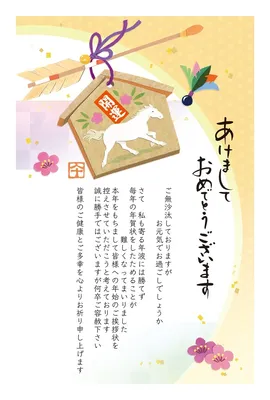 あけまして
おめでとうございます
開運
ご無沙汰しておりますが
お元気でお過ごしでしょうか
さて 私も寄る年波には勝てず
毎年の年賀状をしたためることが
難しくなってまいりました
本年をもちまして皆様への年始のご挨拶状を
控えさせていただこうと考えております
誠に勝手ではございますが何卒ご容赦下さい
皆様のご健康とご多幸を心よりお祈り申し上げます